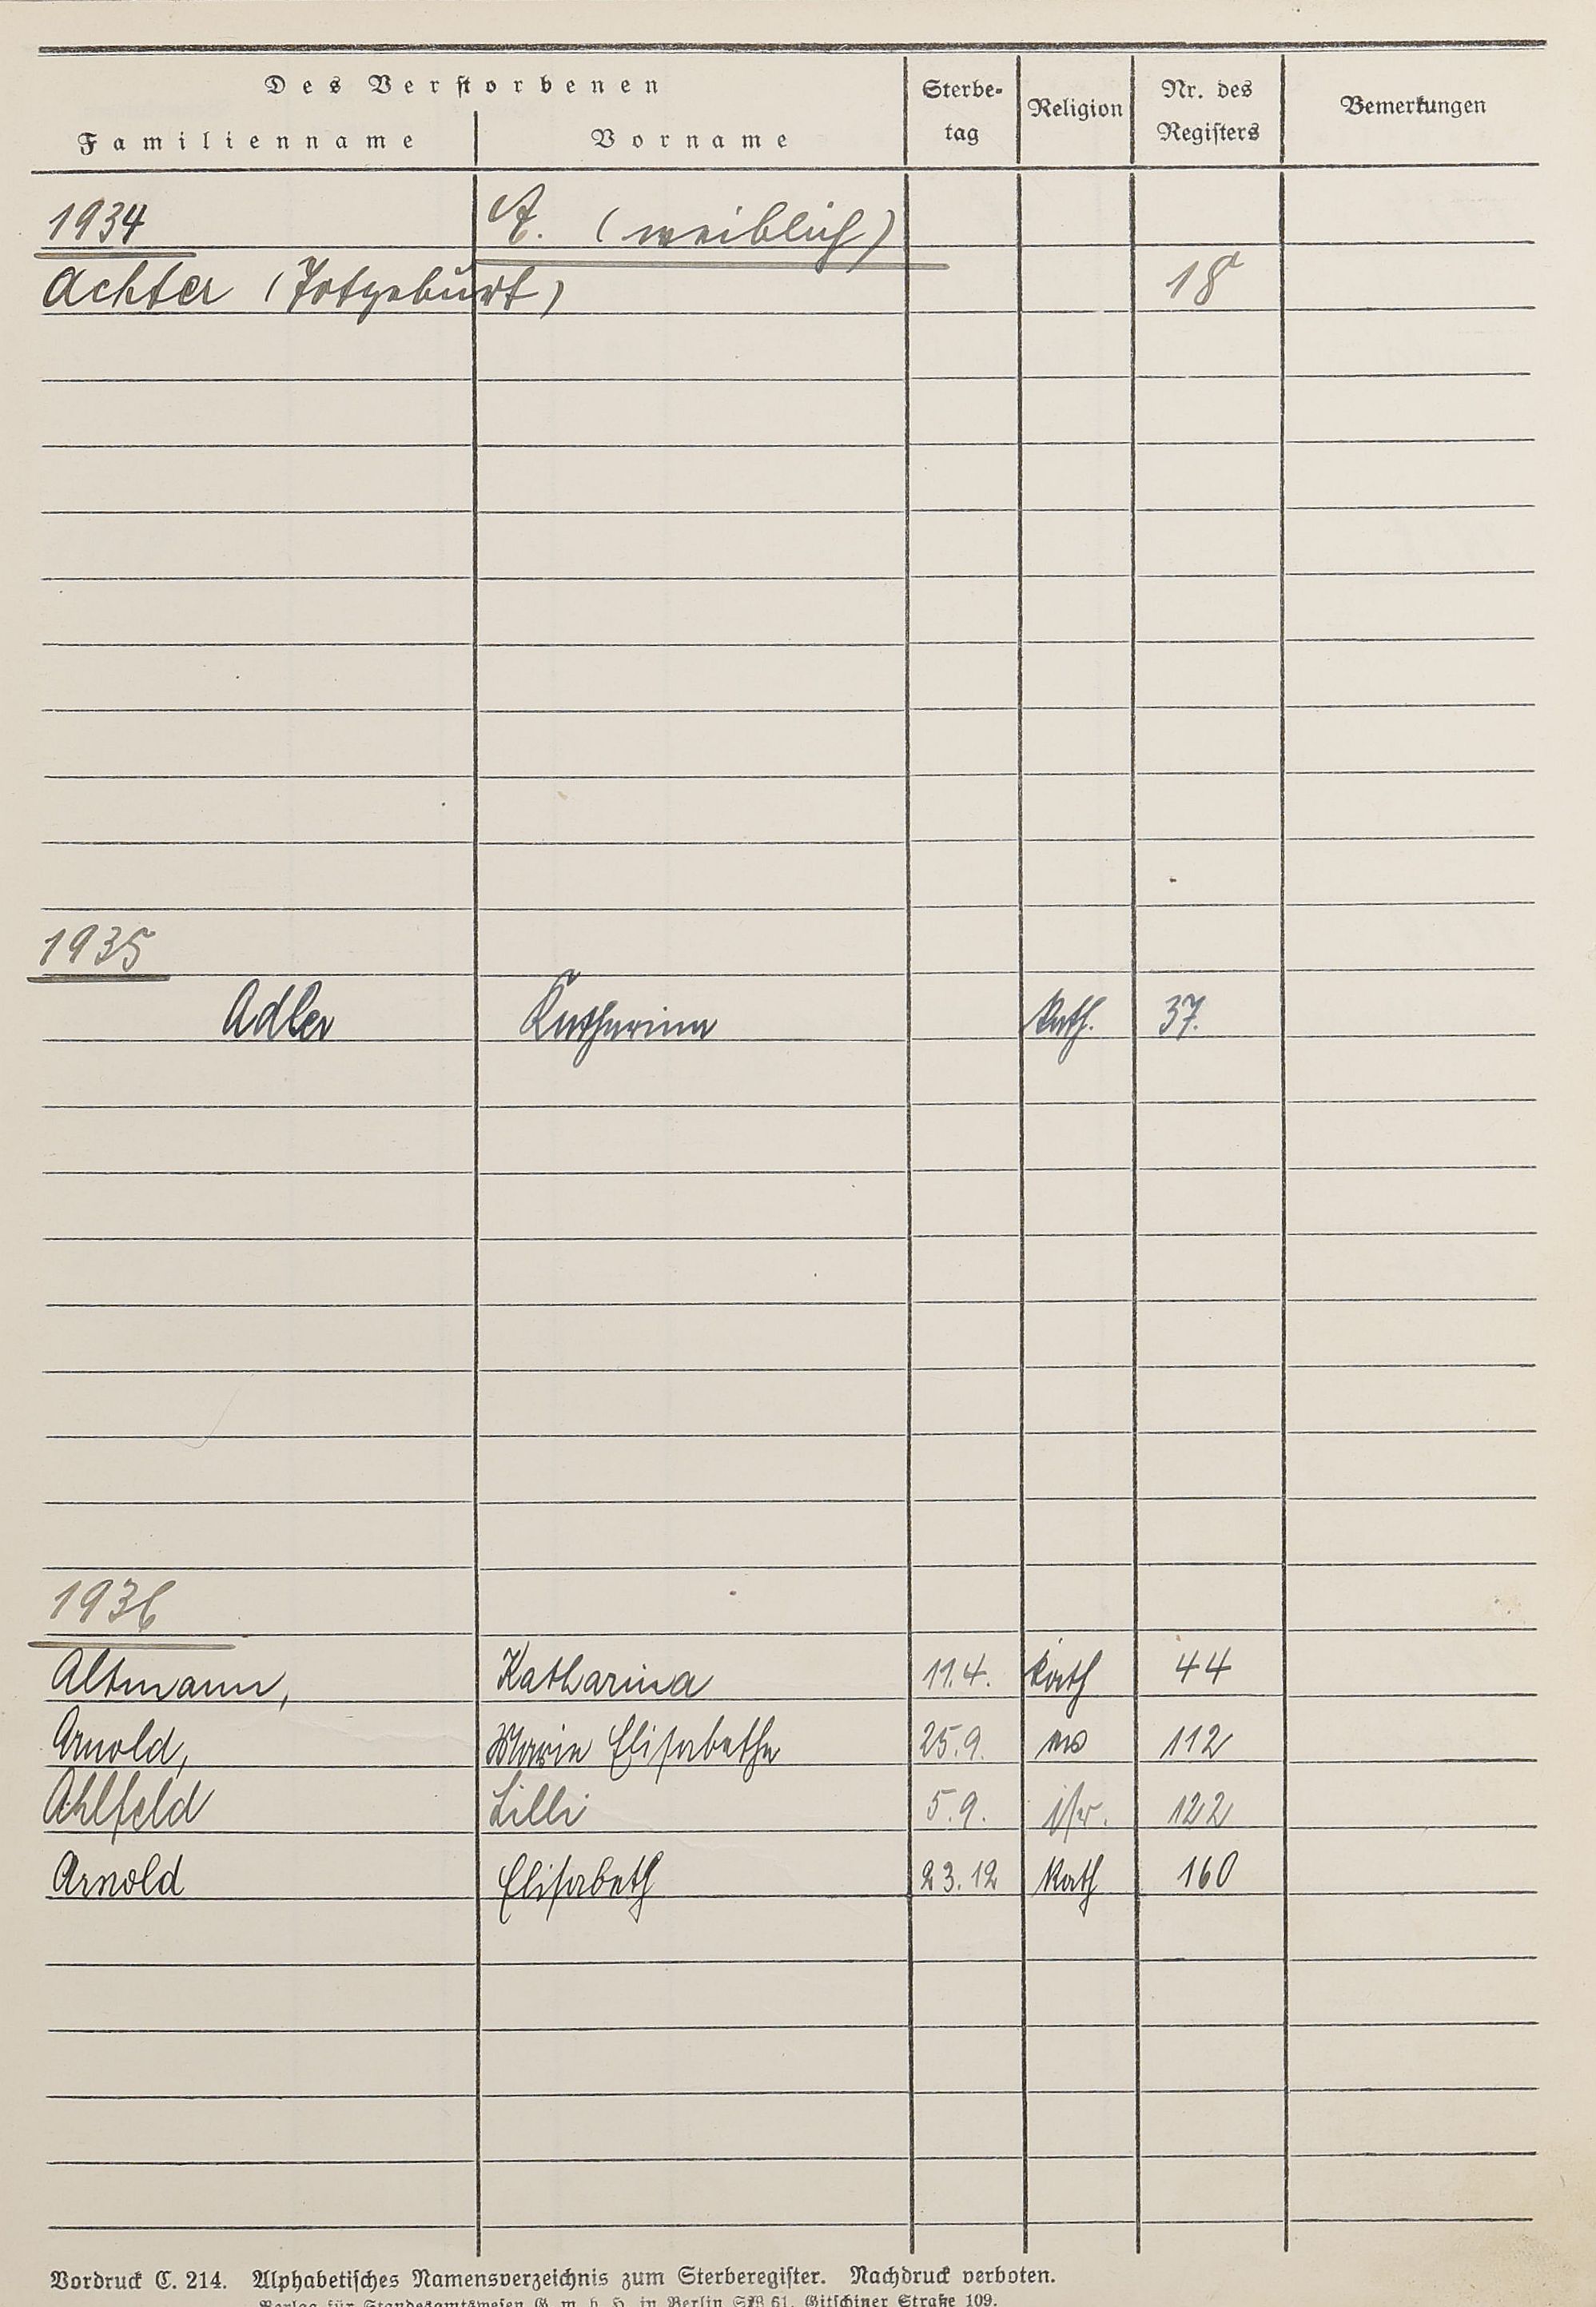 Des Verstorbenen
Familienname Vorname Sterbe-tag Religion Nr. des Registers Bemerkungen
1934 A. (weiblich)
Achter (Totgeburt) 18
1935
Adler Katharina Kath. 37.
1936
Altmann, Katharina 11.4. Kath 44
Arnold, Marie Elisabetha 25.9. 112
Ahlfeld Lilli 5.9. isr. 122
Arnold Elisabeth 23.12 Kath 160
Vordruck C. 214. Alphabetisches Namensverzeichnis zum Sterberegister. Nachdruck verboten.
Verlag für Standesamtswesen G. m. b. H. in Berlin SW 61, Gitschiner Straße 109.